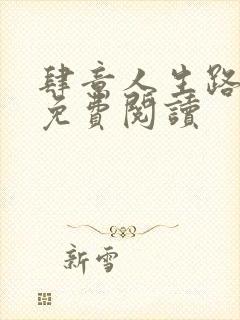 肆意人生路
免費閱讀
新雪